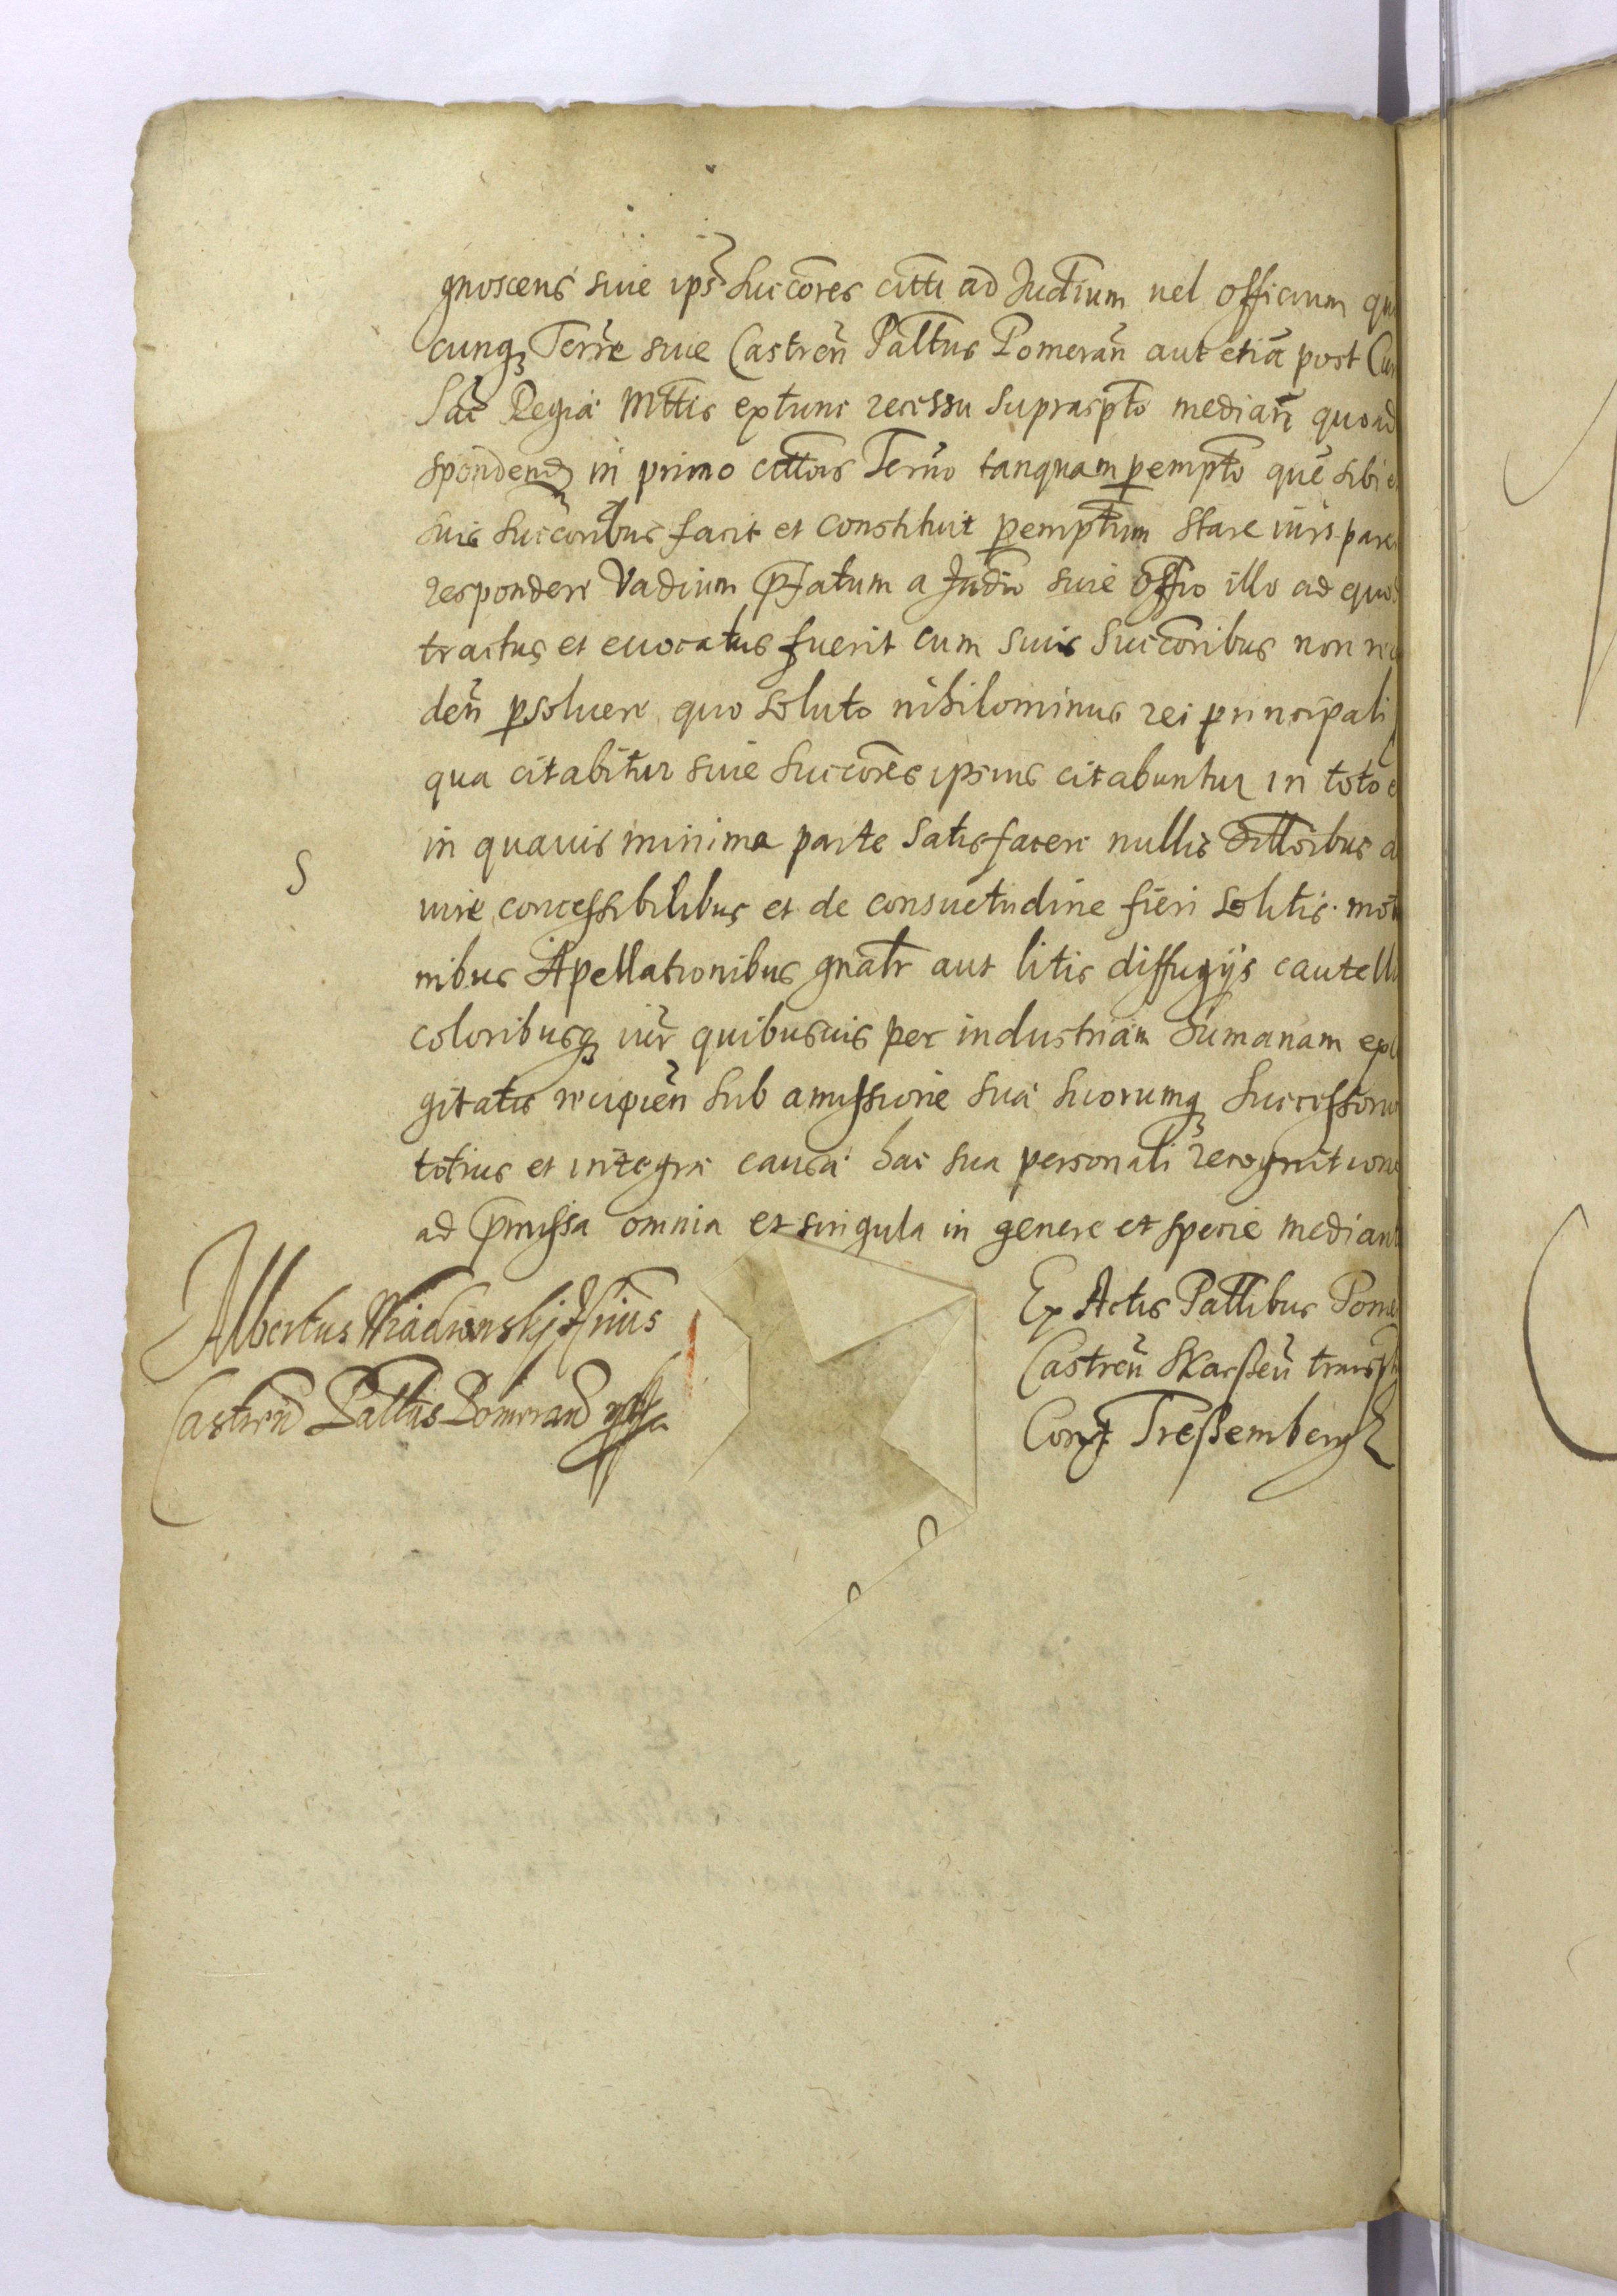 gnoscens siue ips̃ Succ̃ores citt̃i ad Jud̃ium uel officium qu
cunq̃ Terr̃e siue Castreñ Pallt̃us Pomerañ aut etiã post Cu
Sac̃ Regiæ Mtt̃is extunc recessu suprasp̃to mediañ quo ad
spondend̃ in primo citt̃ois Term̃o tanquam pempt̃o quẽ sibi e
suis Succ̃oribus facit et constituit pempt̃um Stare iuri pare
respondere Vadium p̃fatum a Jud̃io siue off̃io illo ad quod
tractus et euocatus fuerit cum suis Succ̃oribus non re
deñ psoluere quo soluto nihilominus rei principali
qua citabitur siue Succ̃ores ipsius citabuntur in toto e
in quauis minima parte Satisfacere nullis dill̃oibus a
iure concessibilibus et de consuetudine fieri solitis mot
nibus Apellationibus gñalr aut litis diffugijs cautell
coloribusq̃ iur̃ quibusuis per industriam humanam exc
gitatis recipieñ Sub amissione suæ suorumq̃ Successoru
totius et integræ causæ hac sua personali recognitione
ad p̃missa omnia et singula in genere et specie mediant
S
Albertus
Castreñ Pallt̃us Pomerañ
Ex Actis Pallt̃ibus Pome
Castreñ Skarßeñ
Treßembergk